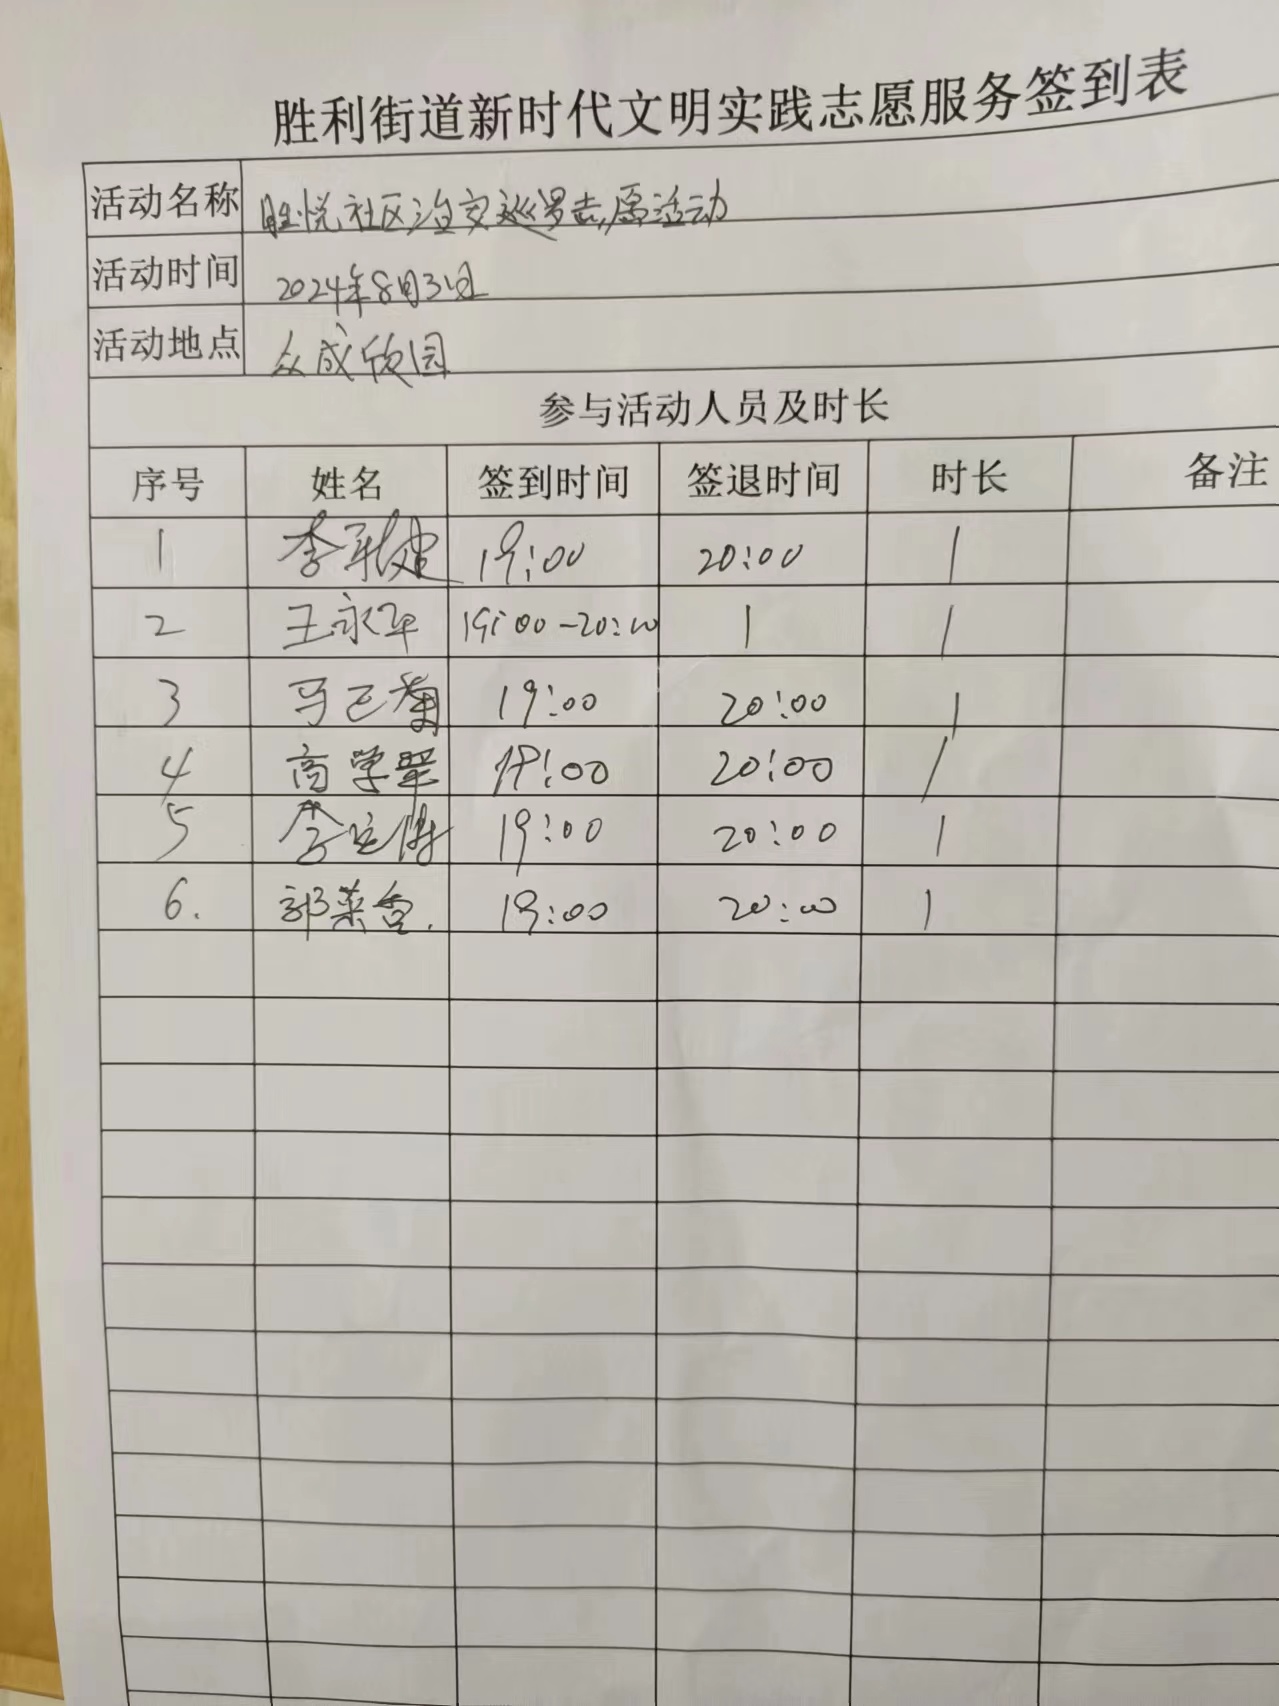 胜利街道新时代文明实践志愿服务签到表
活动名称 胜悦社区治安巡逻志愿活动
活动时间 2024年8月31日
活动地点 众成欣园
参与活动人员及时长
序号 姓名 签到时间 签退时间 时长 备注
1 李 19:00 20:00 1
2 王永平 19:00-20:00 1 1
3 马 19:00 20:00 1
4 商学 19:00 20:00 1
5 李 19:00 20:00 1
6. 郭菜香. 19:00 20:00 1